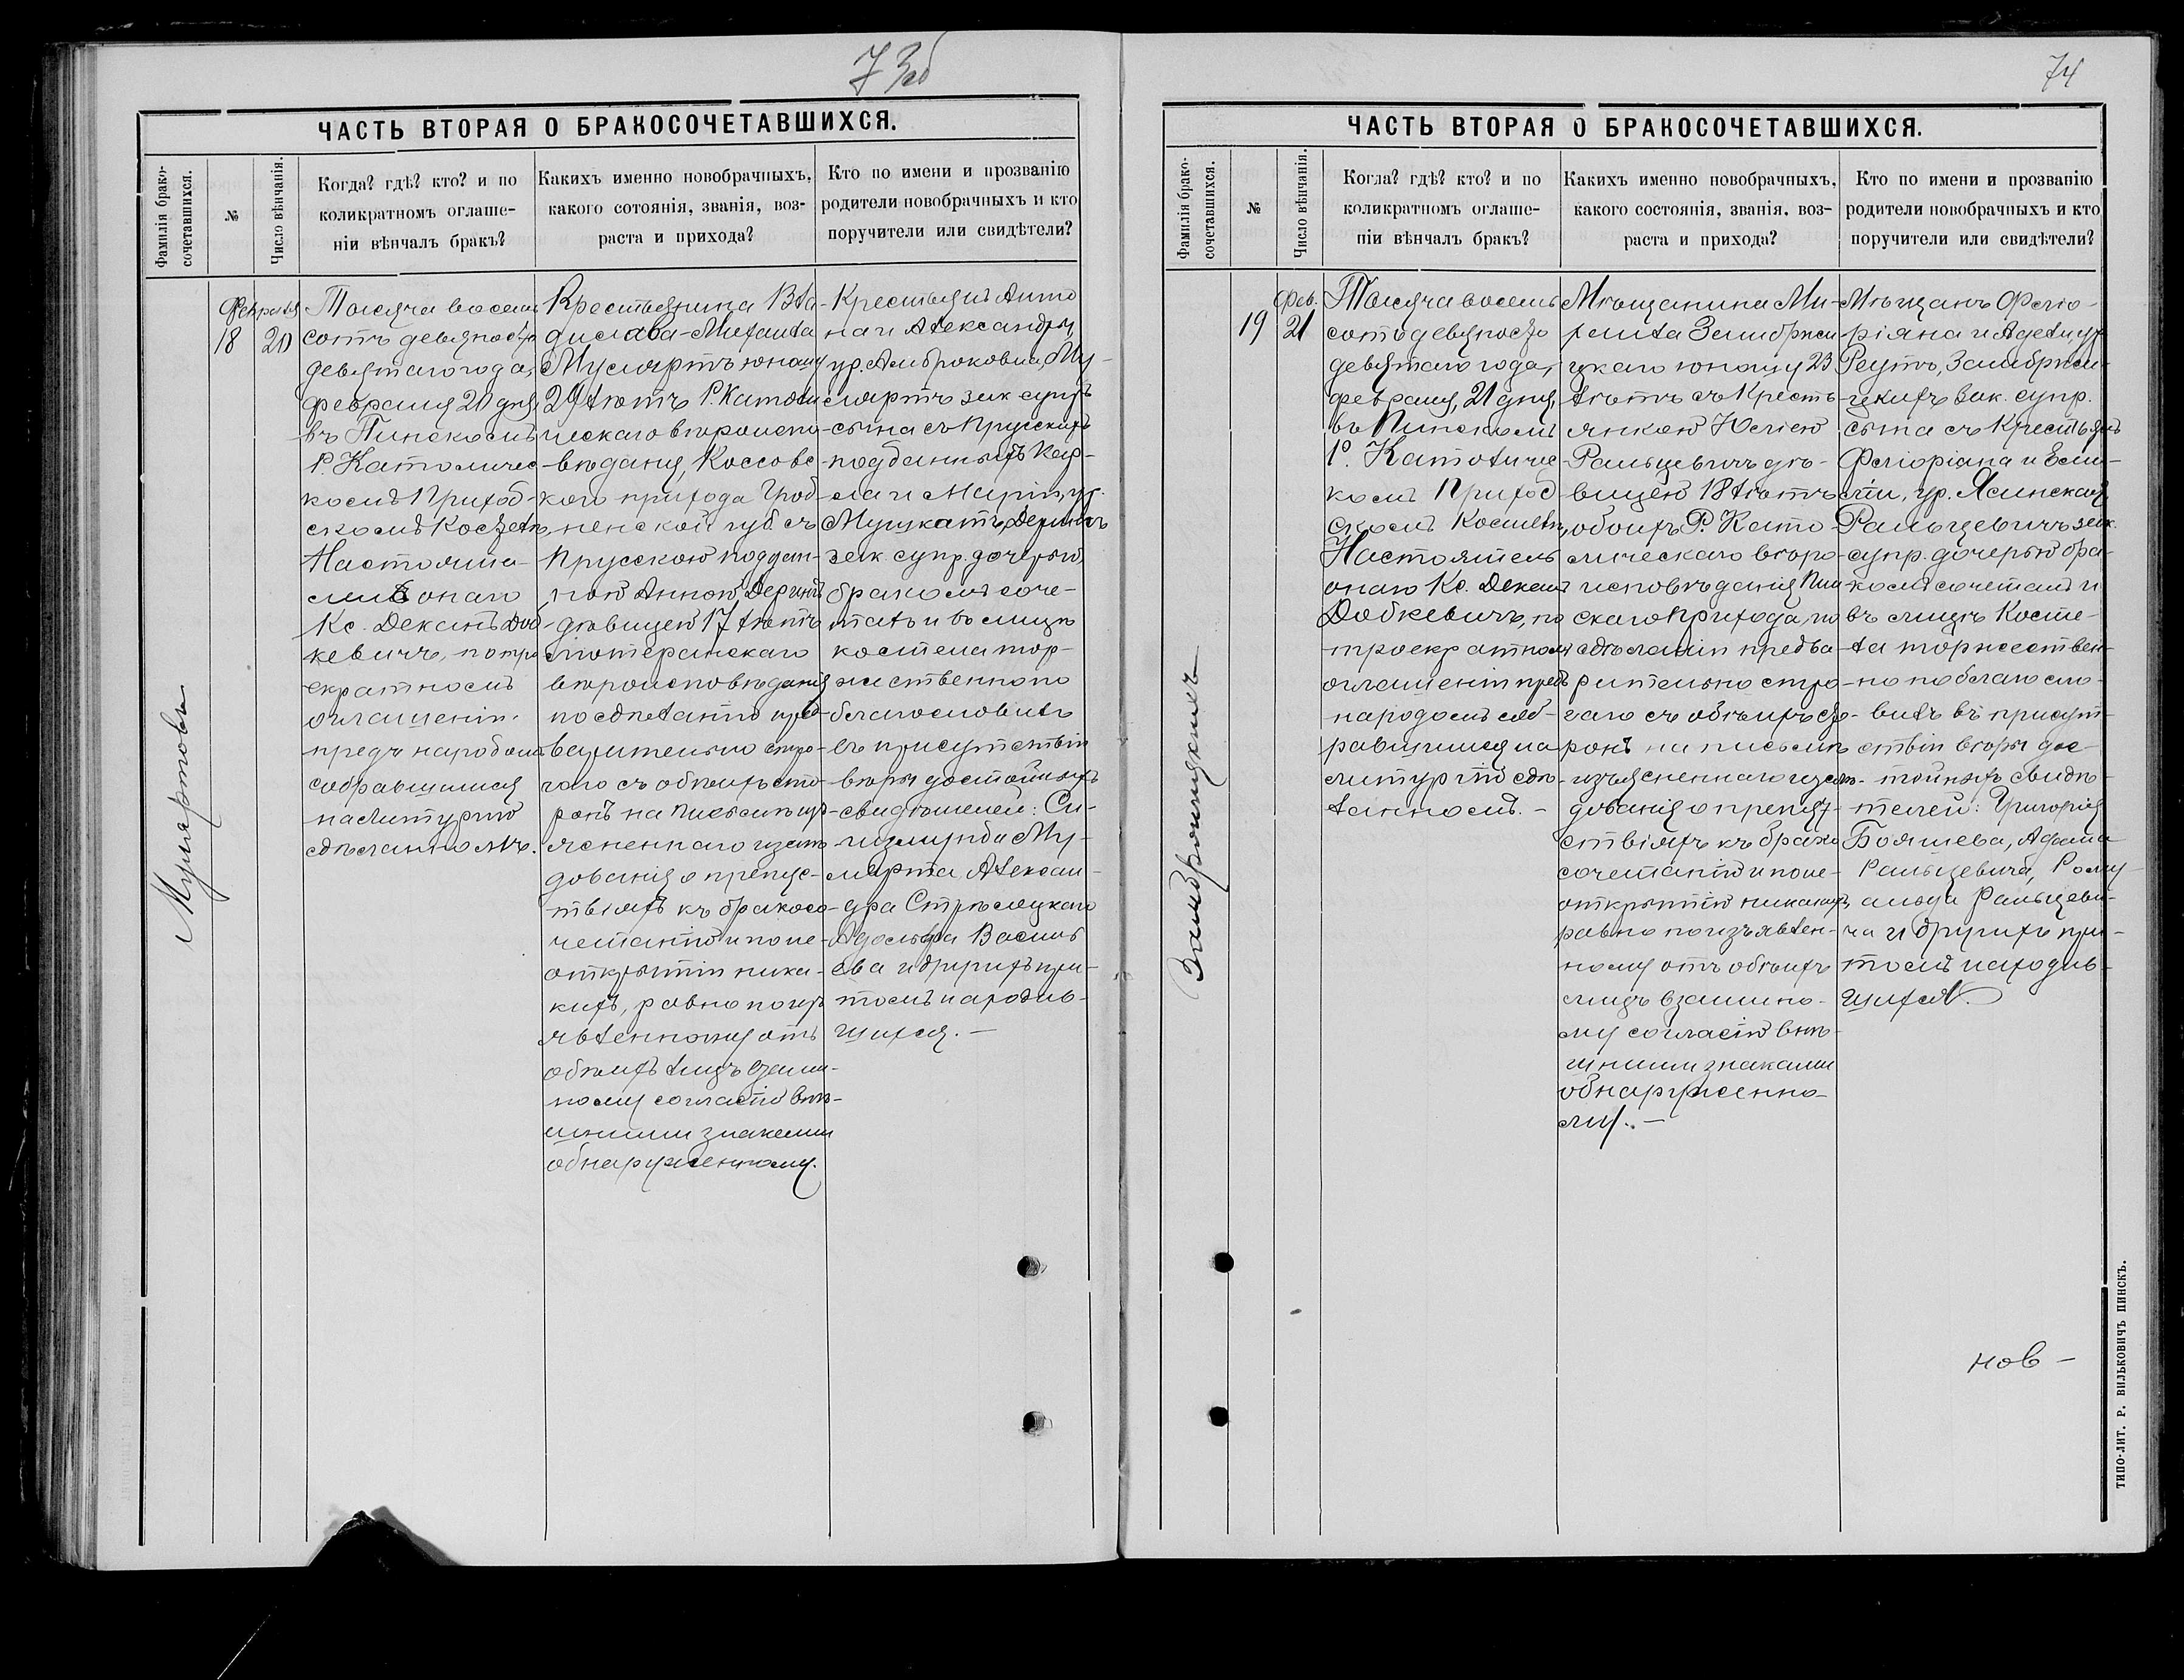 73об
ЧАСТЬ ВТОРАЯ О БРАКОСОЧЕТАВШИХСЯ.
Фамилія брако-
сочетавшихся.
№
Число вѣнчанія.
Когда? гдѣ? кто? и по
коликратномъ оглаше-
ніи вѣнчалъ бракъ?
Какихъ именно новобрачныхъ,
какого сотоянія, званія, воз-
раста и прихода?
Кто по имени и прозванію
родители новобрачныхъ и кто
поручители или свидѣтели?
Мумяртовъ
Февраля
18
20
Тысяча восемь
сотъ девяносто
девятаго года,
февраля 20 дня,
въ Пинскомъ
Р. Католичес-
комъ Приход-
скомъ Костелѣ,
Настоятe-
лемъ онаго
Кс. Деканъ Доб-
кевичъ, по трое
екратномъ
оглашеніи
предъ народомъ
собравшимся
на Литургію
сдѣланномъ.
Крестьянина Вла-
дислава-Михаила
Мумяртъ юношу
29 лѣтъ Р. Католи
ческаго вѣроиспо-
вѣданія, Коссовс-
кого прихода Грод-
ненской губ. съ
Прусскою поддан-
ною Анною Дерингъ
дѣвицею 17 лѣтъ
лютеранскаго
вѣроисповѣданія
по сдѣланію пред-
варительно стро-
гаго съ обѣихъ сто-
ронъ на письмѣ изъ-
ясненнаго изслѣ
дованія о препяс-
твіяхъ къ бракосо-
четанію и по не-
открытіи ника-
кихъ, равно по изъ
явленному отъ
обѣихъ лицъ взаим-
ному согласію внѣ-
шними знаками
обнаруженному.
Крестьянъ Анто
на и Александры,
ур. Амброковна, Му-
мяртъ зак. супр.
сына съ Прусскихъ
подданныхъ Кар-
ла и Маріи, ур.
Мушкатъ, Дерингъ
зак. супр. дочерью,
бракомъ соче-
талъ и въ лицѣ
костела тор-
жественно по
благословилъ
въ присутствіи
вѣры достойныхъ
свидѣтелей: Си-
гизмунда Му-
мярта Алексан-
дра Стрѣлецкаго
Адольфа Василь
ева и другихъ при-
томъ находив-
шихся.—
74
ЧАСТЬ ВТОРАЯ О БРАКОСОЧЕТАВШИХСЯ.
Фамилія брако-
сочетавшихся.
№
Число вѣнчанія.
Когда? гдѣ? кто? и по
коликратномъ оглаше-
ніи вѣнчалъ бракъ?
Какихъ именно новобрачныхъ,
какого состоянія, званія, воз-
раста и прихода?
Кто по имени и прозванію
родители новобрачныхъ и кто
поручители или свидѣтели?
Замбржицкихъ
Фев.
19
21
Тысяча восемь
сотъ девяносто
девятаго года,
февраля, 21 дня,
въ Пинскомъ
Р. Католичес
комъ Приход
скомъ Костелѣ,
Настоятель
онаго Кс. Деканъ
Добкевичъ, по
троекратномъ
оглашеніи предъ
народомъ соб-
равшимся на
литургію сдѣ-
ланномъ.—
Мѣщанина Ми-
хаила Замбржи
цкаго юношу 23
лѣтъ съ Кресть
янкою Юліею
Ральцевичъ дѣ-
вицею 18 лѣтъ
обоихъ Р. Като-
лическаго вѣро-
исповѣданія Пин-
скаго Прихода, по
сдѣланіи предва-
рительно стро-
гаго съ обѣихъ сто-
ронъ на письмѣ
изъясненнаго изслѣ-
дованія о препят-
ствіяхъ къ брако
сочетанію и по не-
открытію никакихъ,
равно по изъявлен-
ному отъ обѣихъ
лицъ взаимно-
му согласію внѣ-
шними знаками
обнаруженно-
му.—
Мѣщанъ Фло-
ріяна и Аделіи, ур.
Реутъ, Замбржи-
цкихъ Зак. супр.
сына съ Крестьянъ
Флоріана и Еми-
ліи, ур. Ясинской,
Ральцевичъ зак.
супр. дочерью бра-
комъ сочеталъ и
въ лицѣ Косте-
ла торжествен-
но поблагосло-
вилъ въ присут-
ствіи вѣры дос-
тойныхъ свидѣ-
телей: Григорія
Адама
Ральцевича, Рому
альда Ральцеви-
ча и другихъ при-
томъ находив-
шихся.
нов—
ТИПО-ЛИТ. Р. ВИЛЬКОВИЧЪ ПИНСКЪ.